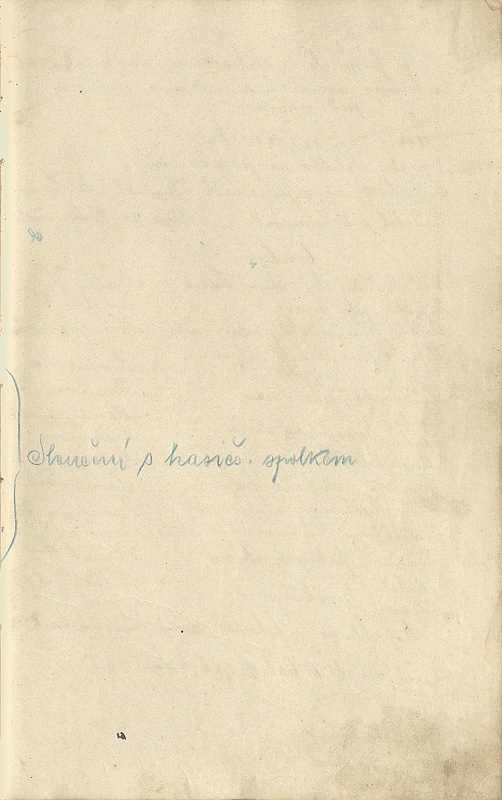 Sloučení s hasičs. spolkem